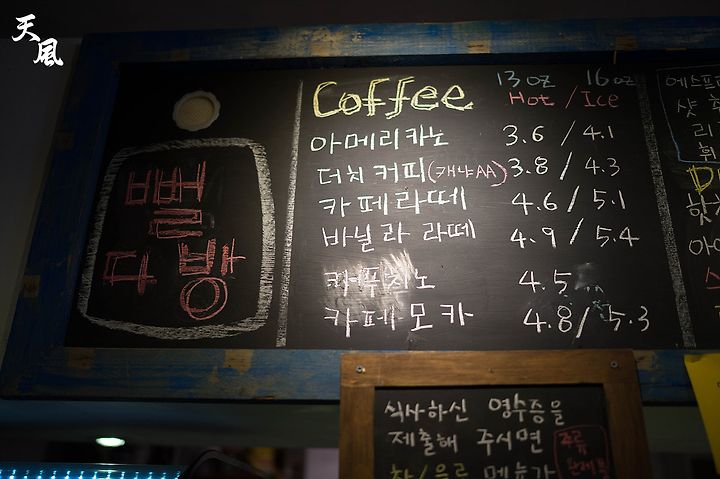 天風
뻘
다방
Coffee
13 oz 16 oz
Hot / Ice
아메리카노 3.6 / 4.1
더치 커피 (케냐AA) 3.8 / 4.3
카페라떼 4.6 / 5.1
바닐라 라떼 4.9 / 5.4
카푸치노 4.5
카페모카 4.8 / 5.3
에스프레
샷
리
휘
식사하신 영수증을
제출해 주시면
차/음료 메뉴가